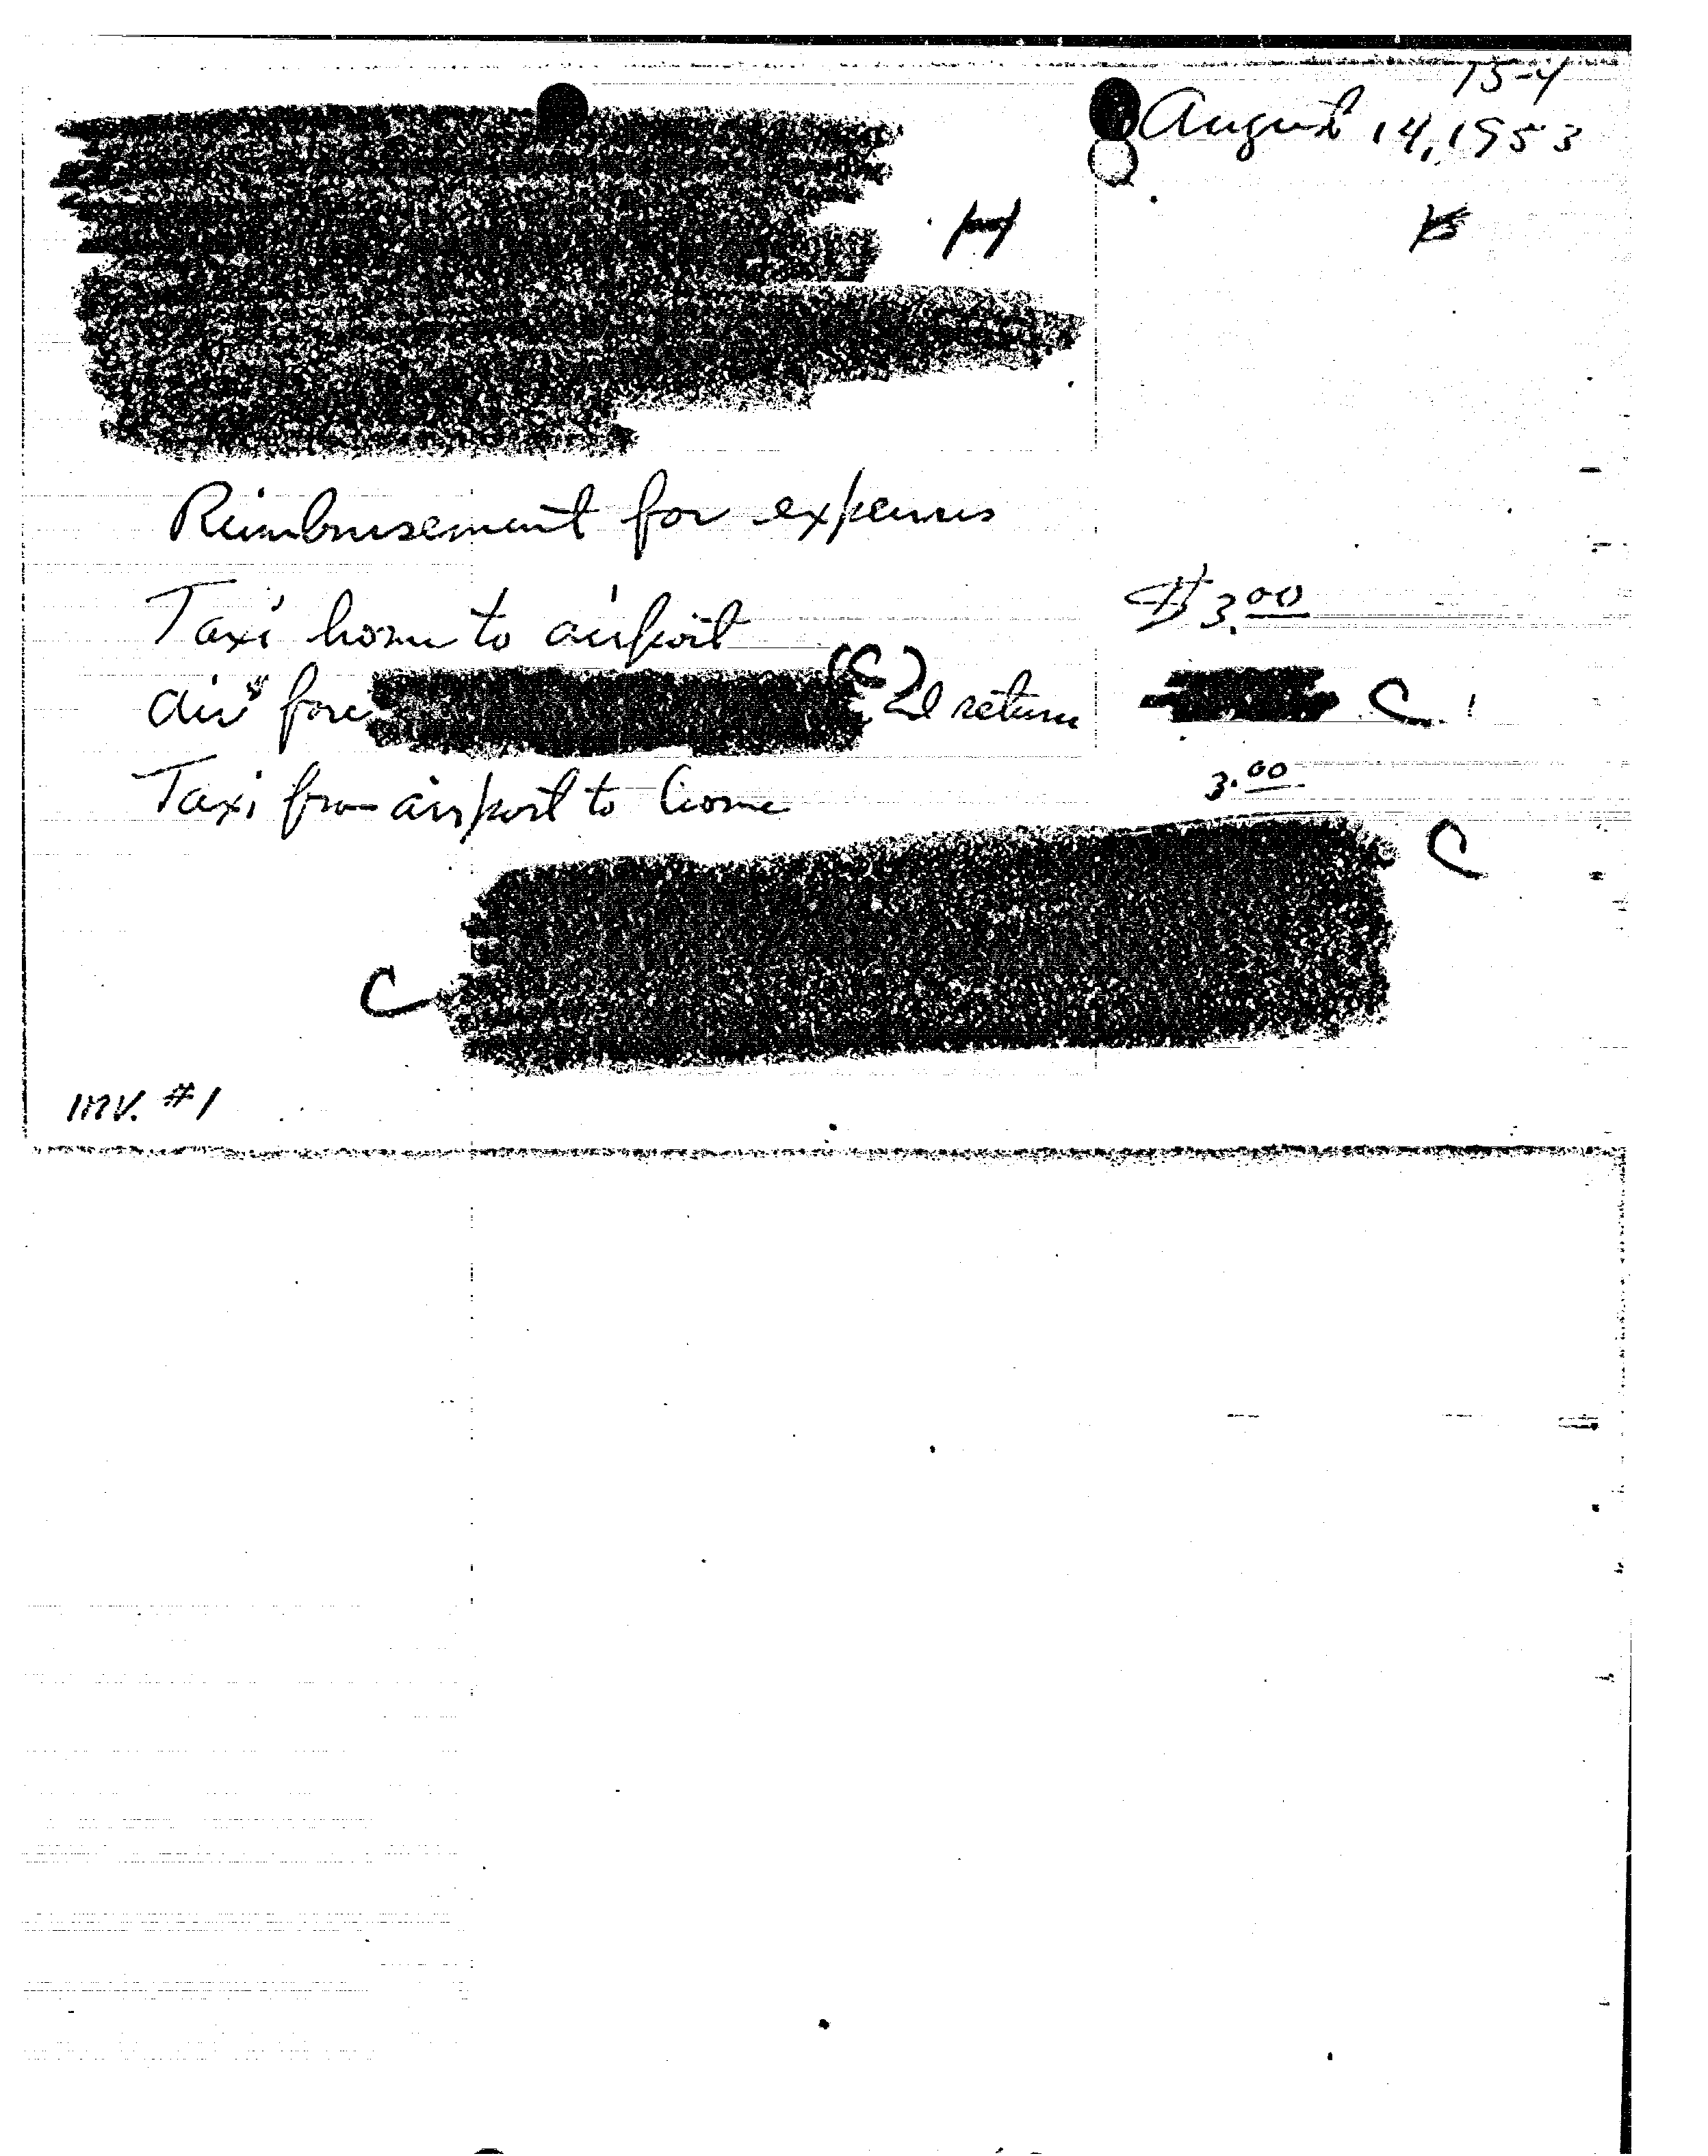 15-4
August 14, 1953
Reimbursement for expenses
Taxi home to airport $3.00
Air fare C return C
Taxi from airport to home 3.00
C
C
INV. #1